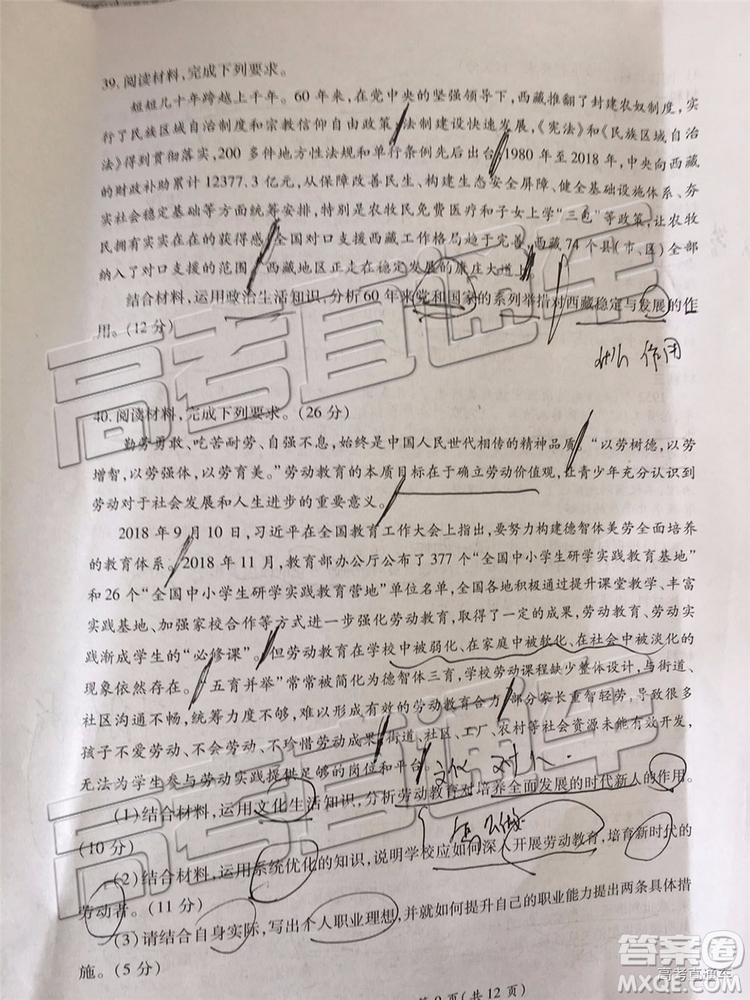 39.阅读材料,完成下列要求。
短短几十年跨越上千年。60年来,在党中央的坚强领导下,西藏推翻了封建农奴制度,实
行了民族区域自治制度和宗教信仰自由政策,法制建设快速发展,《宪法》和《民族区域自治
法》得到贯彻落实,200多件地方性法规和单行条例先后出台,1980年至2018年,中央向西藏
的财政补助累计12377.3亿元,从保障改善民生、构建生态安全屏障、健全基础设施体系、夯
实社会稳定基础等方面统筹安排,特别是农牧民免费医疗和子女上学“三包”等政策,让农牧
民拥有实实在在的获得感,全国对口支援西藏工作格局趋于完善,西藏74个县(市、区)全部
纳入了对口支援的范围,西藏地区正走在稳定发展的康庄大道上。
结合材料,运用政治生活知识,分析60年来党和国家的系列举措对西藏稳定与发展的作
用。(12分)
作用
40.阅读材料,完成下列要求。(26分)
勤劳勇敢、吃苦耐劳、自强不息,始终是中国人民世代相传的精神品质。“以劳树德,以劳
增智,以劳强体,以劳育美。”劳动教育的本质目标在于确立劳动价值观,让青少年充分认识到
劳动对于社会发展和人生进步的重要意义。
2018年9月10日,习近平在全国教育工作大会上指出,要努力构建德智体美劳全面培养
的教育体系。2018年11月,教育部办公厅公布了377个“全国中小学生研学实践教育基地”
和26个“全国中小学生研学实践教育营地”单位名单,全国各地积极通过提升课堂教学、丰富
实践基地、加强家校合作等方式进一步强化劳动教育,取得了一定的成果,劳动教育、劳动实
践渐成学生的“必修课”。但劳动教育在学校中被弱化、在家庭中被软化、在社会中被淡化的
现象依然存在。“五育并举”常常被简化为德智体三育,学校劳动课程缺少整体设计,与街道、
社区沟通不畅,统筹力度不够,难以形成有效的劳动教育合力,部分家长重智轻劳,导致有些
孩子不爱劳动、不会劳动、不珍惜劳动成果,街道、社区、工厂、农村等社会资源未能有效开发,
无法为学生参与劳动实践提供足够的岗位和平台。
文化 对人.
(1)结合材料,运用文化生活知识,分析劳动教育对培养全面发展的时代新人的作用。
(10分)
(2)结合材料,运用系统优化的知识,说明学校应如何深入开展劳动教育,培育新时代的
劳动者。(11分)
(3)请结合自身实际,写出个人职业理想,并就如何提升自己的职业能力提出两条具体措
施。(5分)
第9页(共12页)
高考直通车
高考直通车
答案圈
MXQE.COM
高考直通车